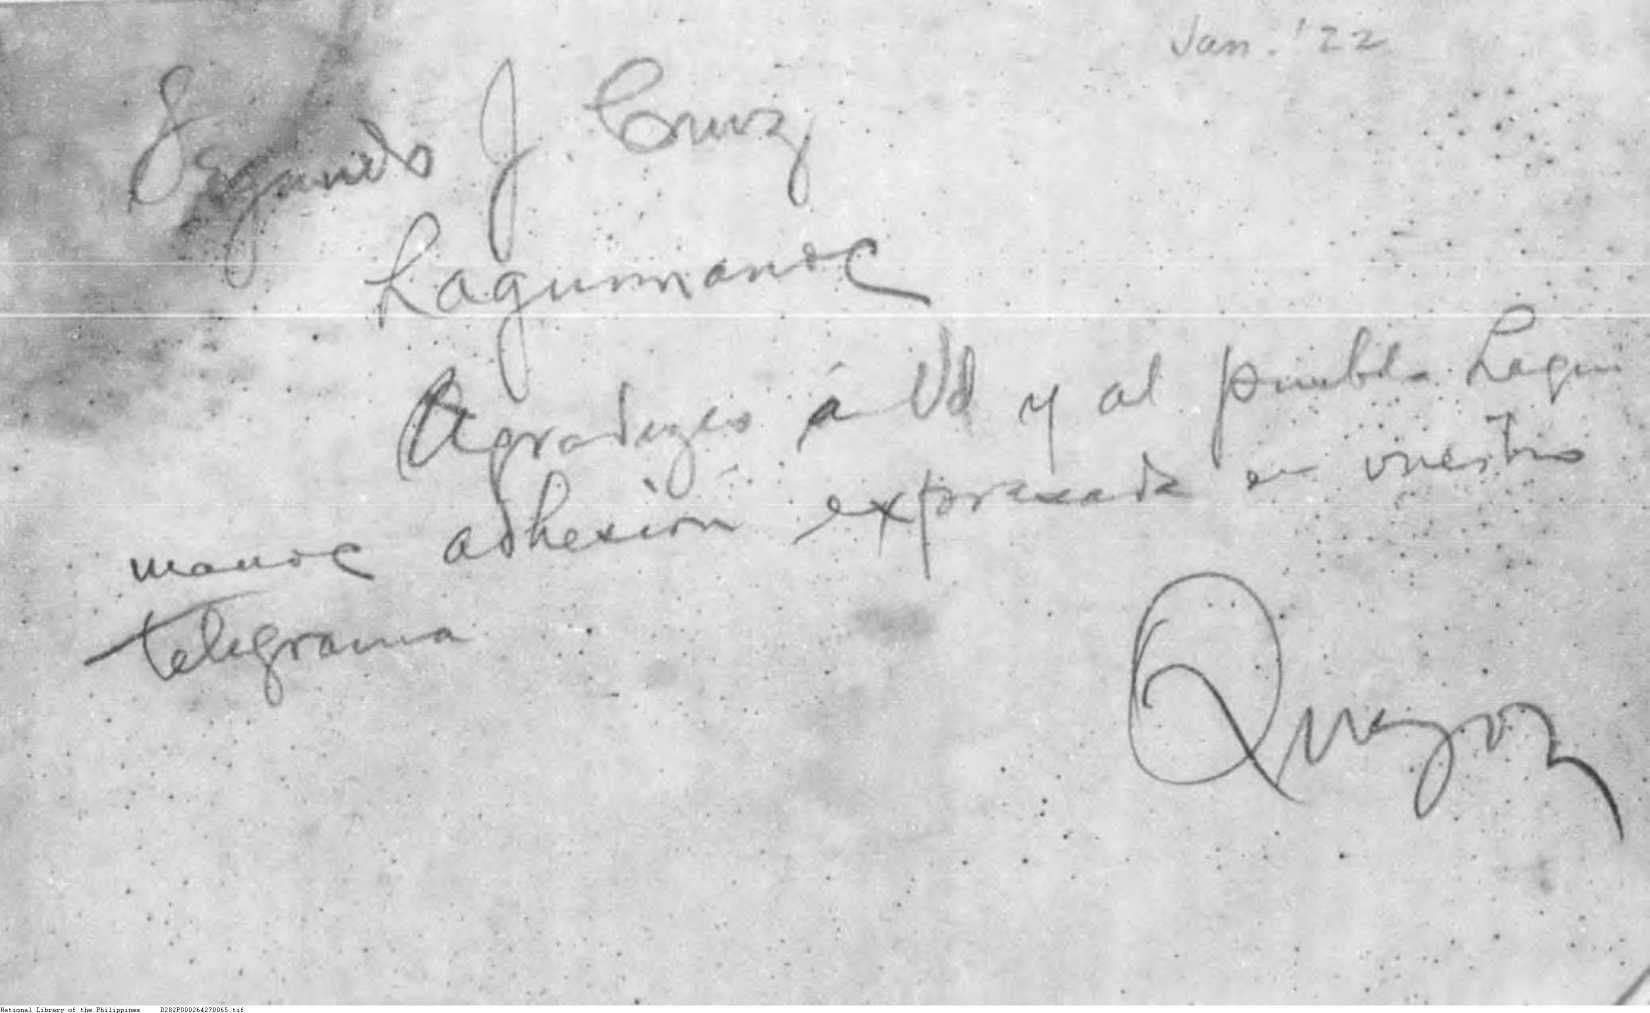 Jan. '22
Segundo J. Cruz
Lagumanoc
Agradezco á Vd y al pueblo Lagu
manoc adhesión expresada en vuestro
telegrama
Quezon
National Library of the Philippines D282P000264270065.tif